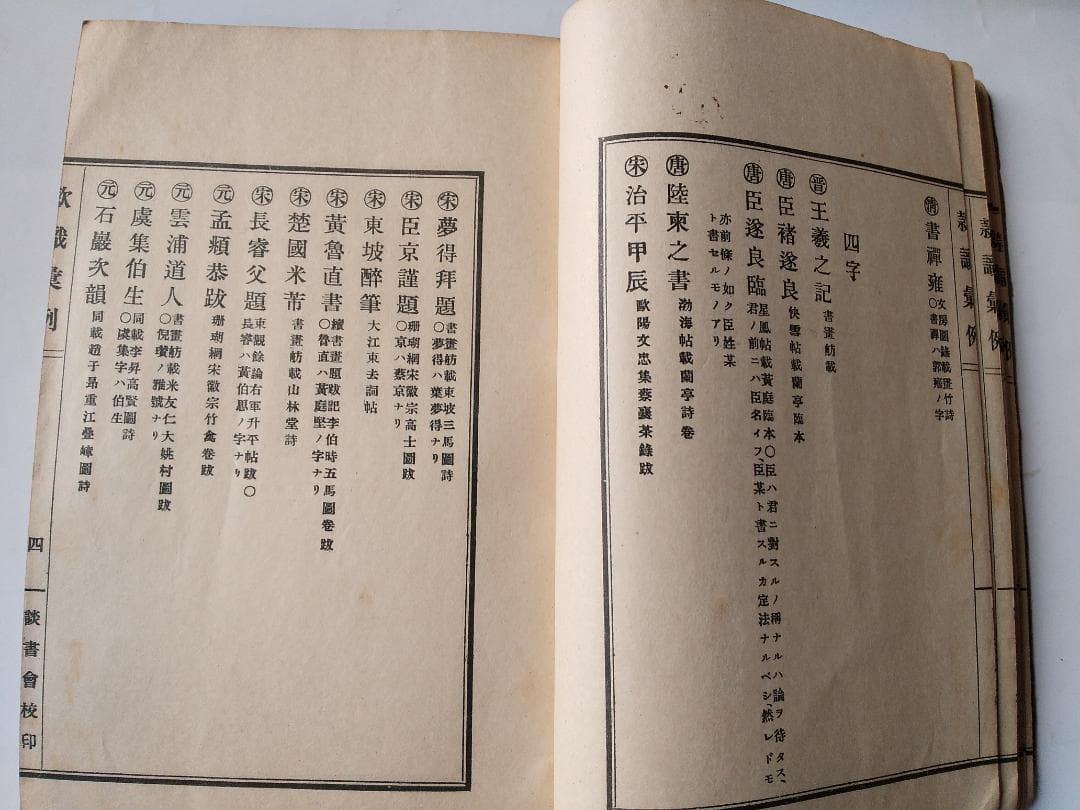 清 書禪雍 文房圖錄載畫竹詩
○書禪ハ郭雍ノ字
四字
晋 王羲之記 書畫舫載
唐 臣褚遂良 快雪帖載蘭亭臨本
唐 臣遂良臨 星鳳帖載黃庭臨本○臣ハ君ニ對スルノ稱ナルハ論ヲ待タス、
君ノ前ニハ臣名イフ、臣某ト書スルカ定法ナルベシ、然レドモ
亦前條ノ如ク臣姓某
ト書セルモノアリ
唐 陸柬之書 渤海帖載蘭亭詩卷
宋 治平甲辰 歐陽文忠集蔡襄茶錄跋
宋 夢得拜題 書畫舫載東坡三馬圖詩
○夢得ハ葉夢得ナリ
宋 臣京謹題 珊瑚網宋徽宗高士圖跋
○京ハ蔡京ナリ
宋 東坡醉筆 大江東去詞帖
宋 黃魯直書 續書畫題跋記李伯時五馬圖卷跋
○魯直ハ黃庭堅ノ字ナリ
宋 楚國米芾 書畫舫載山林堂詩
宋 長睿父題 東觀餘論右軍升平帖跋○
長睿ハ黃伯思ノ字ナリ
元 孟頫恭跋 珊瑚網宋徽宗竹禽卷跋
元 雲浦道人 書畫舫載米友仁大姚村圖跋
○倪瓚ノ雅號ナリ
元 虞集伯生 同載李昇高賢圖詩
○虞集字ハ伯生
元 石巖次韻 同載趙子昻重江疊嶂圖詩
款識彙例
四
談書會校印